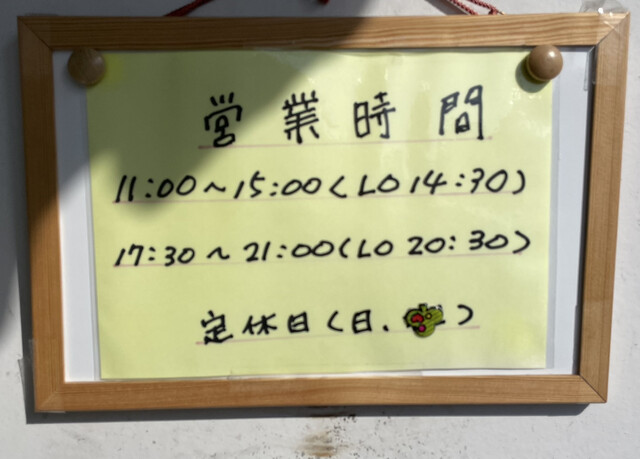 営業時間
11:00～15:00(LO 14:30)
17:30～21:00(LO 20:30)
定休日(日、)